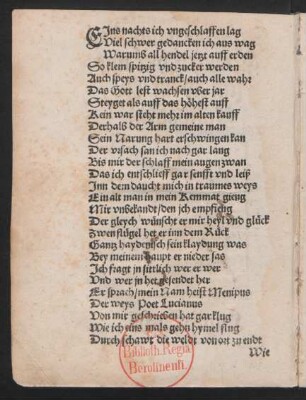 EIns nachts ich vngeschlaffen lag
Viel schwer gedancken ich aus wag
Warumb all hendel jetzt auff erden
So klein spitzig vnd zucker werden
Auch speys vnd tranck / auch alle wahr
Das Gott lest wachsen vber jar
Steyget als auff das höhest auff
Kein war steht mehr im alten kauff
Derhalb der Arm gemeine man
Sein Narung hart erschwingen kan
Der vrsach san ich nach gar lang
Bis mir der schlaff mein augen zwan
Das ich entschlieff gar senfft vnd leiß
Inn dem daucht mich in traumes weys
Ein alt man in mein Kemmat gieng
Mir vnbekandt / den ich empfieng
Der gleych wünscht er mir heyl vnd glück
Zwen flügel het er inn dem Rück
Gantz haydenisch sein klaydung was
Bey meinem haupt er nieder sas
Ich fragt jn sittlich wer er wer
Vnd wer jn het gesendet her
Er sprach / mein Nam heist Menipus
Der weys Poet Lucianus
Von mir geschrieben hat gar klug
Wie ich eins mals gehn hymel flug
Durch schawt die weldt von ort zu endt
Wie
Biblioth. Regia
Berolinensi.